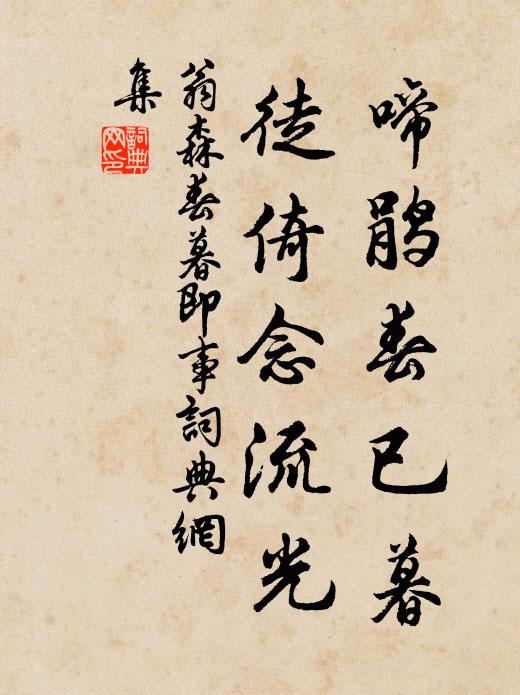 啼鵑春已暮
徒倚念流光
翁森春暮即事詞典網
集
詞典
网印